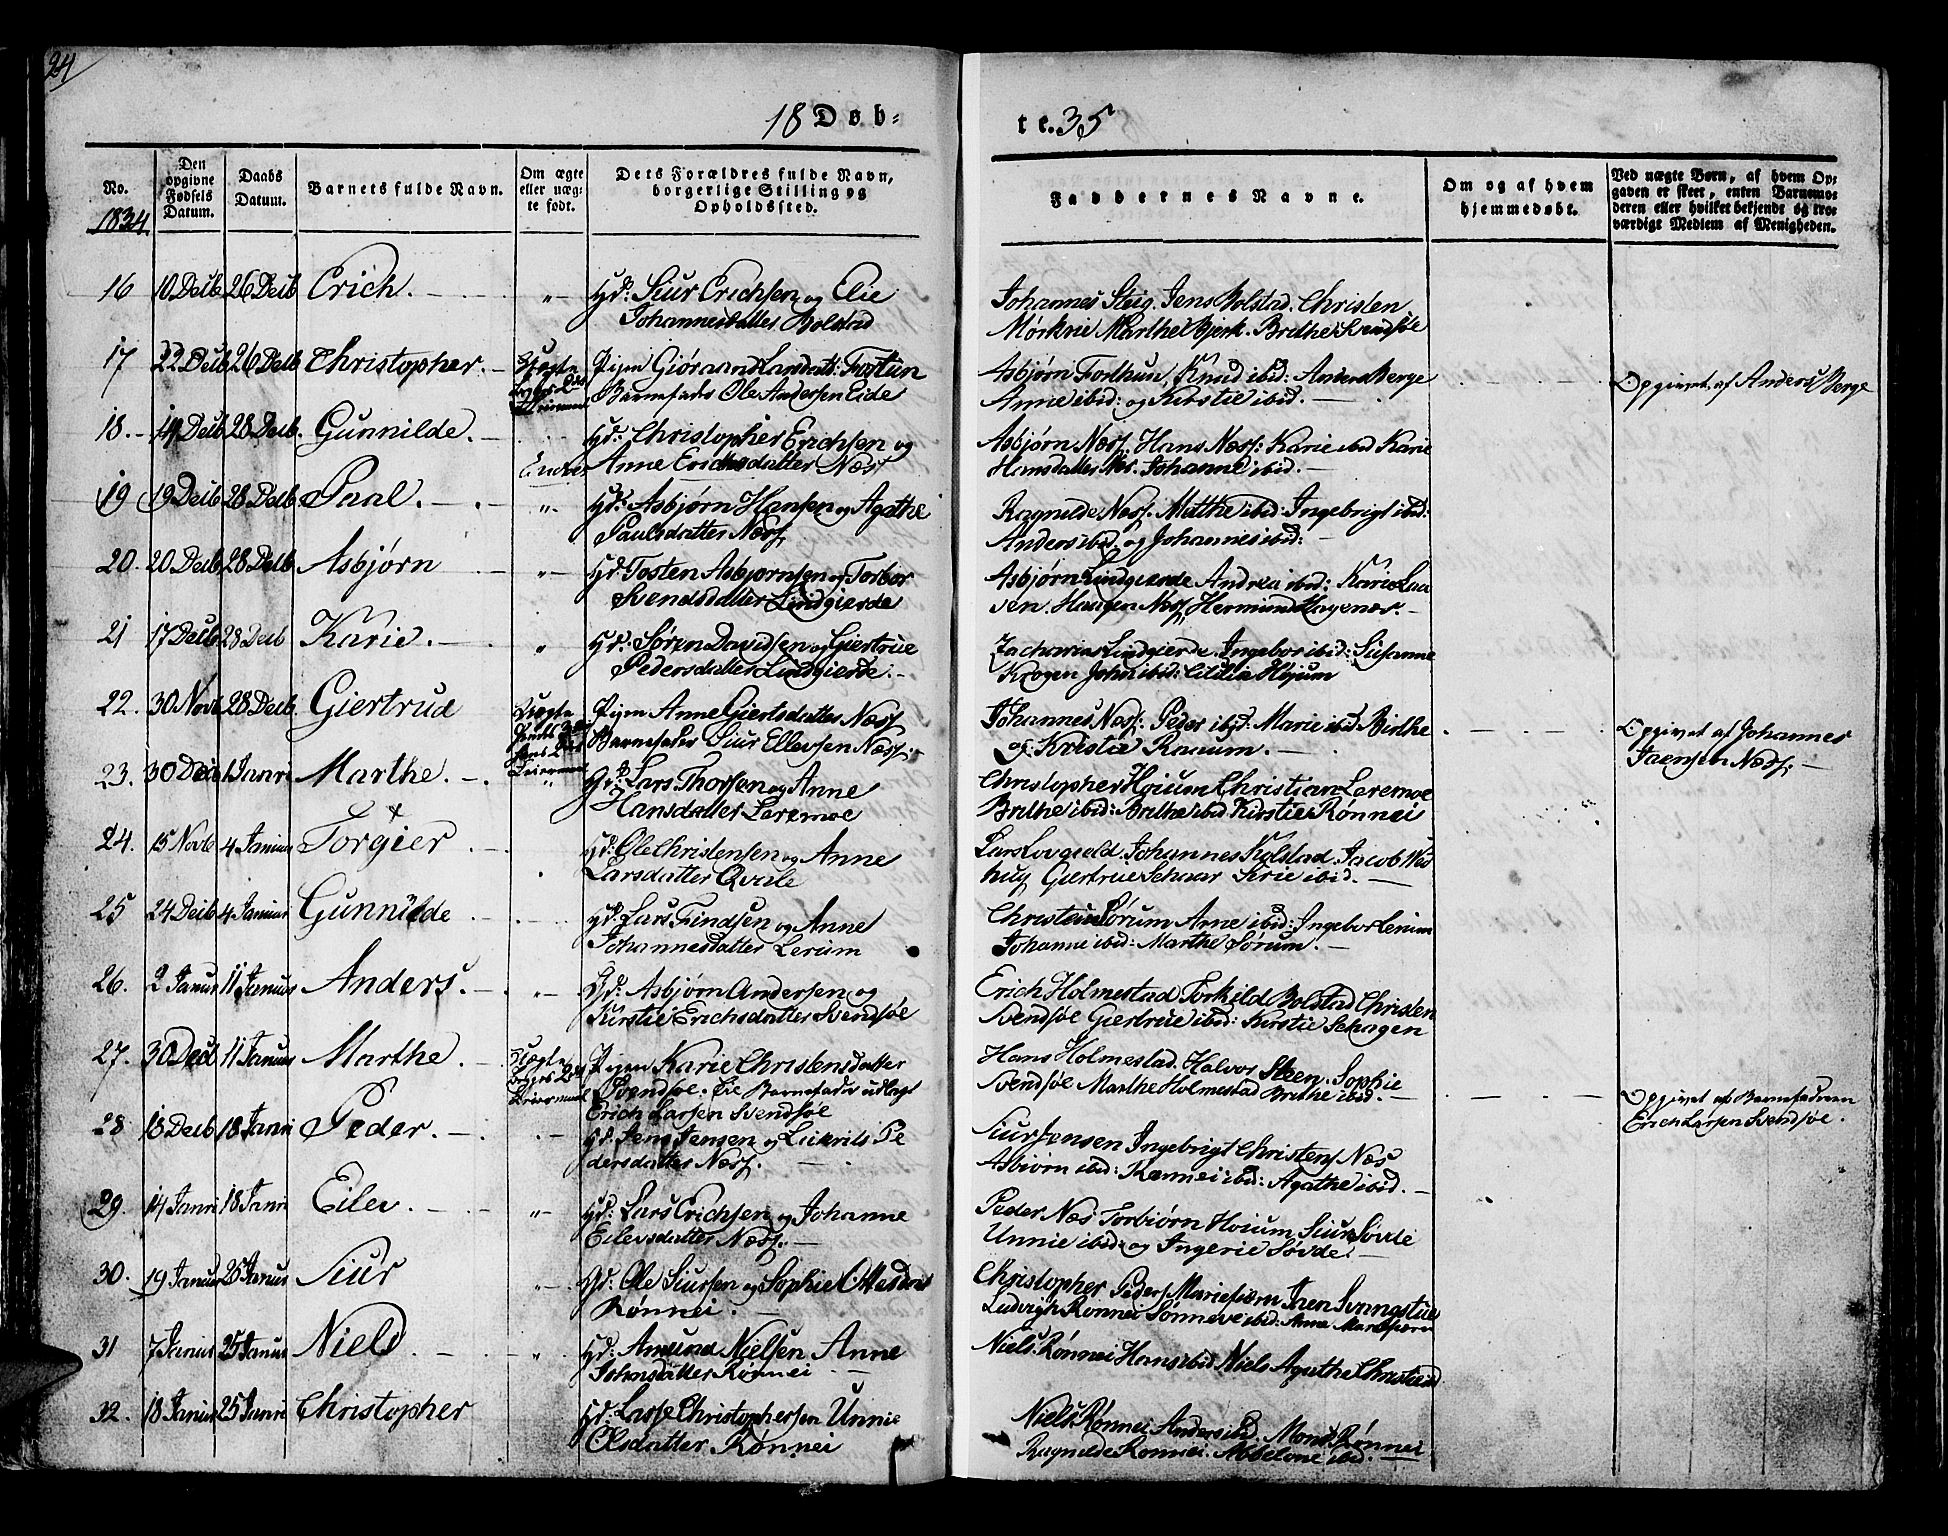 24
18 Døb-
te. 35
No.
1834.
Den
opgivne
Fødsels
Datum.
Daabs
Datum.
Barnets fulde Navn.
Om ægte
eller uæg-
te født.
Dets Forældres fulde Navn,
borgerlige Stilling og
Opholdssted.
Faddernes Navne.
Om og af hvem
hjemmedøbt.
Ved uægte Børn, af hvem Op-
gaven er skeet, enten Barnemo-
deren eller hvilket bekjendt og tro-
værdigt Medlem af Menigheden.
16 10 Decb 26 Decb Erich. „ Gd: Siur Erichsen og Elie
Johannesdatter Bolstad
Johannes Steig. Jens Bolstad. Christen
Mørkrie Marthe Bjerk. Brithe
17 22 Decb 26 Decb Christopher. Uægte Pigen Larsdatt: Fortun
Barnefader Ole Andersen Eide
Asbjørn Forthun, Knud ibid: Anders Berge
Anne ibid: og Kirstie ibid.
Opgivet af Anders Berge
18. 14 Decb 28 Decb. Gunnilde. Gd: Christopher Erichsen og
Anne Erichsdatter Næss
Asbjørn Næss. Hans Næss: Karie ibid Karie
Hansdatter Næs. Johanne ibid.
19 19 Decb 28 Decb Paal. „ Gd: Asbjørn Hansen og Agathe
Paulsdatter Næss
Ragnilde Næss. Matthe ibid: Ingebrigt ibid:
Anders ibid. og Johannes ibid:
20. 20 Decb 28 Decb Asbjørn „ Gd: Tosten Asbjørnsen og Torbor
Svendsdatter Lindgierde
Asbjørn Lindgierde Andrea ibid: Karie
Haugen Næss
21 17 Decb 28 Decb Karie. „ Gd: Søren Davidsen og Giertrue
Pedersdatter Lindgierde.
Zacharias Lindgierde. Ingebor ibid: Susanne
Krogen John ibid: Høium
22. 30 Novb 28 Decb. Giertrud Uægte Pigen Anne Giertsdatter Næss
Barnefader Siur Ellevsen Næss.
Johannes Næss: Peder ibid: Marie ibid Birthe
og Kristie Raaum.
Opgivet af Johannes
Jaensen Næss.
23. 30 Decb 1 Janri Marthe. „ Gd: Lars Thorsen og Anne
Hansdatter Leremoe
Christopher Høium Christian Leremoe
Brithe ibid: Brithe ibid Kirstie Rønnei
24. 15 Novb 4 Januar Torgier Gd: Ole Christensen og Anne
Larsdatter Qvale
Lars Johannes Kolstad. Jacob
Giertrue Schaar Sirie ibid.
25 24 Decb 4 Januar Gunnilde Gd: Lars Findsen og Anne
Johannesdatter Lerum
Christen Sørum Anne ibid: Ingebor Lerum
Johanne ibid: Marthe Sørum.
26. 2 Januar 11 Januar Anders. „ Gd: Asbjørn Andersen og
Kirstie Erichsdatter Svendsøe
Erich Holmestad Torkild Bolstad Christen
Svendsøe Giertrue ibid: Kirstie
27. 30 Decb 11 Januar Marthe Uægte Pigen Karie Christensdatter
Svendsøe. Barnefader udlagt
Erich Larsen Svendsøe
Hans Holmestad. Halvor Steen. Sophie
Svendsøe Marthe Holmestad Brithe ibid.
Opgivet af Barnefaderen
Erich Larsen Svendsøe.
28 18 Decb 18 Janri Peder. Gd: Jens Jensen og Pe
dersdatter Næss.
Siur Jensen Ingebrigt Christen Næs
Asbiørn ibid: ibid: Agathe ibid.
29. 14 Janri 18 Janri Eilev. „ Gd: Lars Erichsen og Johanne
Eilevsdatter Næss.
Peder Næs Torbiørn Høium, Siur Søvde
Unnie ibid: og Ingerie Søvde.
30. 19 Januar 25 Januar Siur „ Gd: Ole Siursen og Sophie
Rønnei.
Christopher Peder
Ludvigh Rønnei Sønneve ibid: Anne
31 7 Januar 25 Januar Niels „ Gd: Amund Nielsen Anne
Johnsdatter Rønnei
Niels Rønnei Hans ibid Niels Agathe
32. 18 Januar 25 Janri Christopher Gd: Lasse Christophersen Unnie
Olsdatter Rønnei
Niels Rønnei Anders ibid. Rønnei
Ragnilde Rønnei. Abbelone ibid.